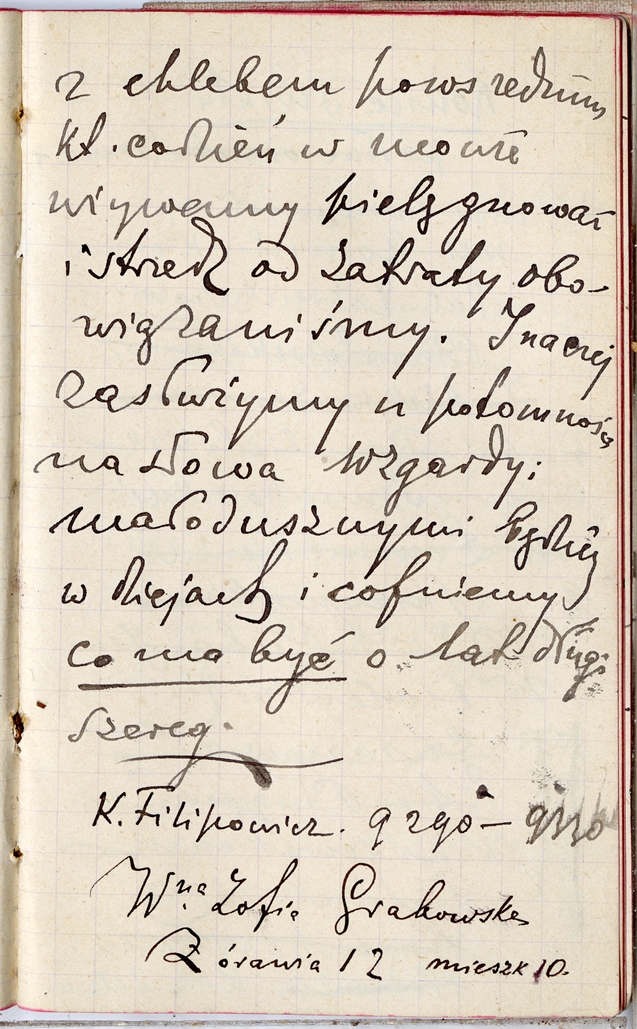 z chlebem powszednim
kt. codzień w
używamy pielęgnować
i strzedz od zatraty obo-
wiązaniśmy. Inaczej
zasłużymy u potomności
na słowa wzgardy:
małodusznymi będziem
w dziejach i cofniemy
co ma być o lat długi
szereg.
K. Filipowicz. 9
Wna Zofia Grabowska
Żórawia 12 mieszk 10.